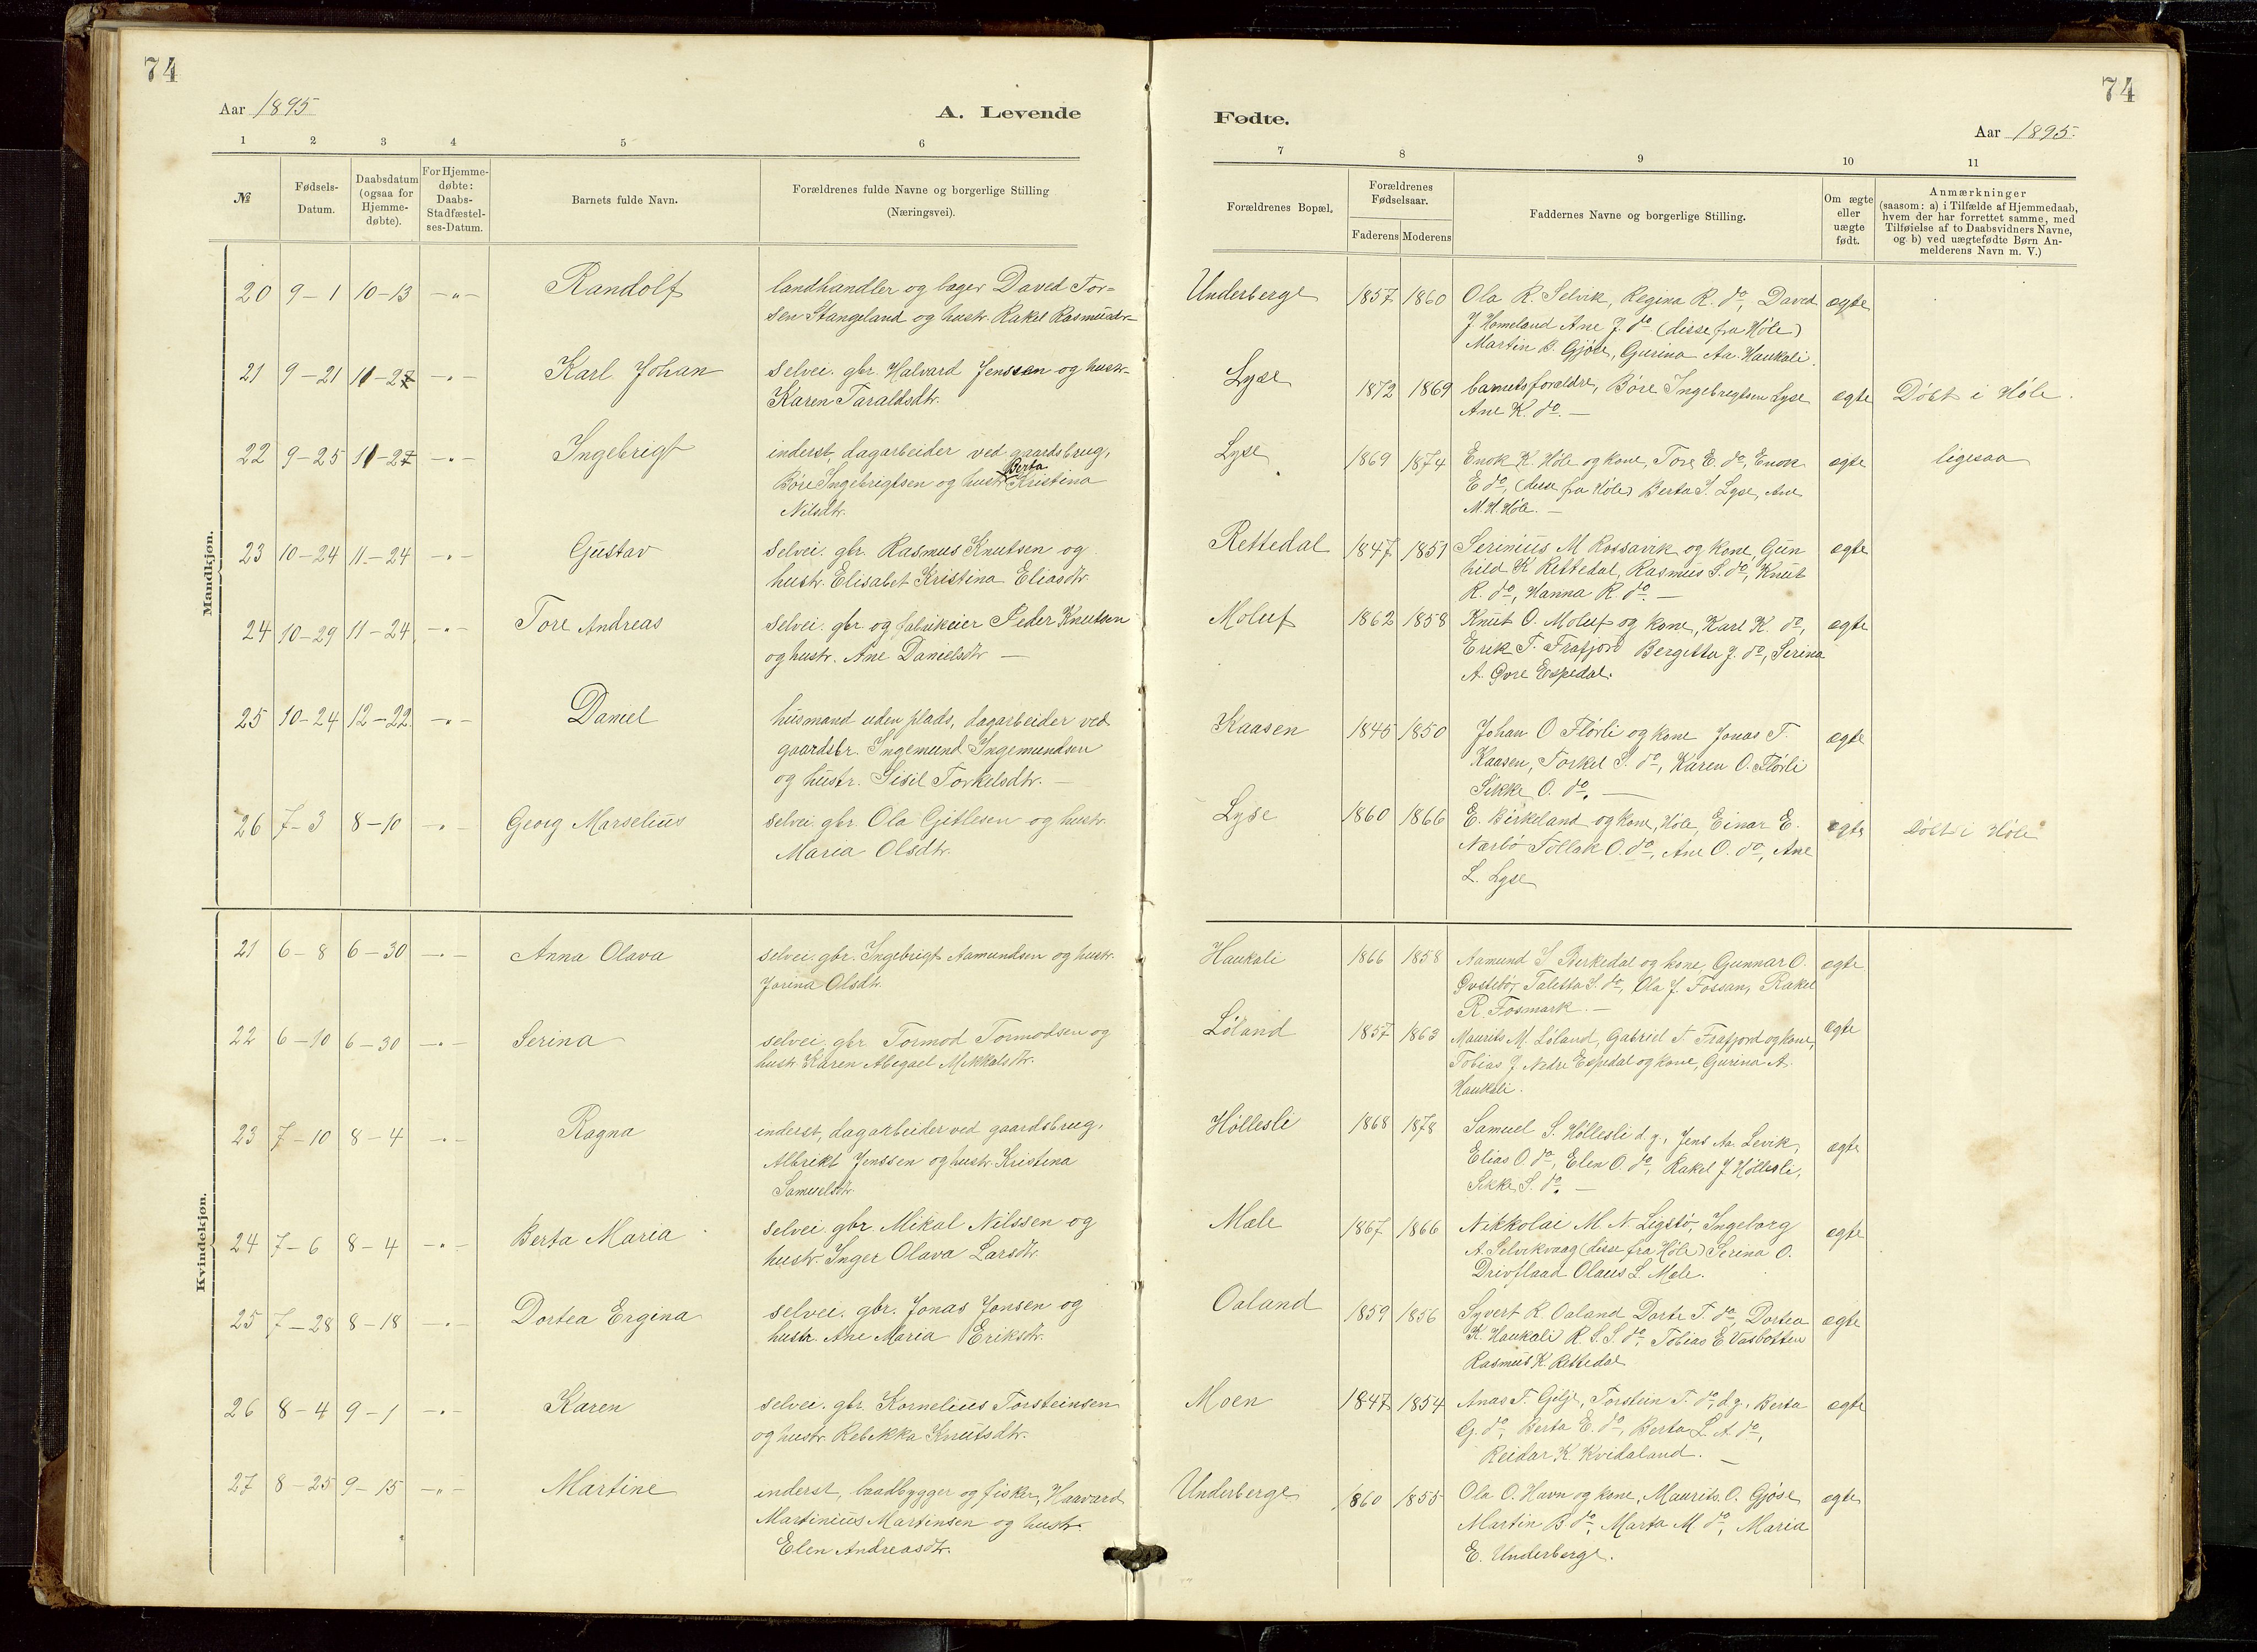 74
Aar 1895
A. Levende
1 2 3 4 5 6
№
Fødsels-
Datum.
Daabsdatum
(ogsaa for
Hjemme-
døbte).
For Hjemme-
døbte:
Daabs-
Stadfæstel-
ses-Datum.
Barnets fulde Navn.
Forældrenes fulde Navne og borgerlige Stilling
(Næringsvei).
Mandkjøn.
20 9-1 10-13 -„- Randolf landhandler og bager Daved Tor=
sen Stangeland og hustr. Rakel Rasmusdtr.
21 9-21 11-27 -„- Karl Johan selvei. gbr. Halvard Jenssen og hustr.
Karen Taraldsdtr.
22 9-25 11-27 -„- Ingebrigt inderst, dagarbeider ved gaardsbrug,
Berta
Børe Ingebrigtsen og hustr. Kristina
Nilsdtr.
23 10-24 11-24 -„- Gustav Selvei. gbr. Rasmus Knutsen og
hustr. Elisabet Kristina Eliasdtr.
24 10-29 11-24 -„- Tore Andreas selvei. gbr. og fabrikeier Peder Knutsen
og hustr. Ane Danielsdtr —
25 10-24 12-22 -„- Daniel husmand uden plads, dagarbeider ved
gaardsbr. Ingemund Ingemundsen
og hustr. Sisil Torkelsdtr. —
26 7-3 8-10 -„- Georg Marselius selvei gbr. Ola Gitlesen og hustr.
Maria Olsdtr.
Kvindekjøn.
21 6-8 6-30 -„- Anna Olava selvei. gbr. Ingebrigt Aamundsen og hustr.
Jorina Olsdtr.
22 6-10 6-30 -„- Serina selvei. gbr Tormod Tormodsen og
hustr Karen Abegael Mikkalsdtr.
23 7-10 8-4 -„- Ragna inderst, dagarbeider ved gaardsbrug,
Albrikt Jenssen og hustr. Kristina
Samuelsdtr.
24 7-6 8-4 -„- Berta Maria selvei gbr. Mikal Nilssen og
hustr. Inger Olava Larsdtr.
25 7-28 8-18 -„- Dortea Ergina selvei. gbr. Jonas Jonsen og
hustr. Ane Maria Eriksdtr.
26 8-4 9-1 -„- Karen selvei. gbr. Kornelius Torsteinsen
og hustr. Rebekka Knutsdtr.
27 8-25 9-15 -„- Martine inderst, baadbygger og fisker, Haavard
Martinius Martinsen og hustr.
Elen Andreasdtr.
74
Fødte.
Aar 1895.
7 8 9 10 11
Forældrenes Bopæl.
Forældrenes
Fødselsaar.
Faderens Moderens
Faddernes Navne og borgerlige Stilling.
Om ægte
eller
uægte
født.
Anmærkninger
(saasom: a) i Tilfælde af Hjemmedaab,
hvem der har forrettet samme, med
Tilføielse af to Daabsvidners Navne,
og b) ved uægtefødte Børn An-
melderens Navn m. V.)
Underberge 1857 1860 Ola R. Selvik, Regina R. do, Daved ægte
J. Homeland Ane J. do (disse fra Høle)
Martin B. Gjøse, Gurina Aa. Haukali.
Lyse 1872 1869 barnets forældre, Børe Ingebregtsen Lyse ægte Døbt i Høle.
Ane K. do. —
Lyse 1869 1874 Enok K. Høle og kone, Tore E. do, Enok ægte ligesaa
E do, (disse fra Høle) Berta S. Lyse, Ane
M. H. Høle. —
Rettedal 1847 1851 Serinius M Rossavik og kone, Gun ægte
hild K Rettedal, Rasmus S. do, Knut
R. do, Hanna R. do. —
Moluf 1862 1858 Knut O. Moluf og kone, Karl K. do, ægte
Erik T. Frafjord Bergitta J. do, Serina
A. Øvre Espedal.
Kaasen 1845 1850 Johan O Flørli og kone Jonas T. ægte
Kaasen, Torkel S. do, Karen O. Flørli
Sikke O. do. —
Lyse 1860 1866 E. Birkeland og kone, Høle, Einar E. ægte Døbt i Høle
Nærbø Tollak O. do, Ane O. do, Ane
L. Lyse
Haukali 1866 1858 Aamund S Berkedal og kone, Gunnar O. ægte
Østebø, Taletta S. do, Ola J. Fossan, Rakel
R. Fosmark. —
Løland 1857 1863 Maurits M. Løland, Gabriel T. Frafjord og kone, ægte
Tobias J Nedre Espedal og kone, Gurina A.
Haukali.
Høllesli 1868 1878 Samuel S. Høllesli d.y., Jens Aa. Levik, ægte
Elias O. do, Elen O. do, Rakel J Høllesli,
Sikke S. do. —
Mæle 1867 1866 Nikkolai M. N Ligstø, Ingeborg ægte
A. Selvikvaag (disse fra Høle) Serina O.
Drivflaad Olaus L. Mæle.
Oaland 1859 1856 Syvert R Oaland Dorte T. do, Dortea ægte
K. Haukali R. S. S. do, Tobias E Vasbotten
Rasmus K. Rettedal
Moen 1847 1854 Anas T. Gilje, Torstein T. do, d.y., Berta ægte
G. do, Berta E. do, Berta L. A. do,
Reidar K. Kvidaland. —
Underberge 1860 1855 Ola O. Havn og kone, Maurits O. Gjøse, ægte
Martin B do, Marta M. do, Maria
E. Underberge.